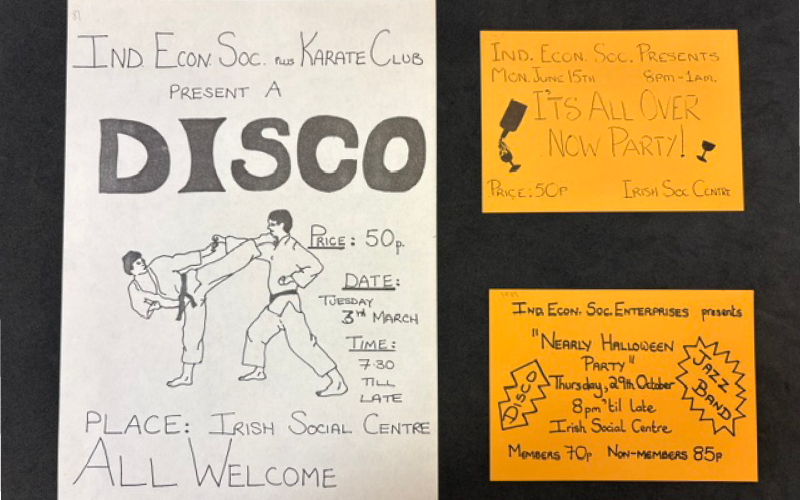 IND. ECON. SOC. PLUS KARATE CLUB
PRESENT A
DISCO
PRICE: 50p.
DATE:
TUESDAY
3rd MARCH
TIME:
7·30
TILL
LATE
PLACE: IRISH SOCIAL CENTRE
ALL WELCOME
IND. ECON. SOC. PRESENTS
MON. JUNE 15TH 8PM-1AM.
IT'S ALL OVER
NOW PARTY!
PRICE: 50P IRISH SOC CENTRE
IND. ECON. SOC. ENTERPRISES presents
"NEARLY HALLOWEEN
PARTY"
DISCO
Thursday, 29th October
8pm 'til late
Irish Social Centre
JAZZ
BAND
MEMBERS 70p NON-MEMBERS 85p